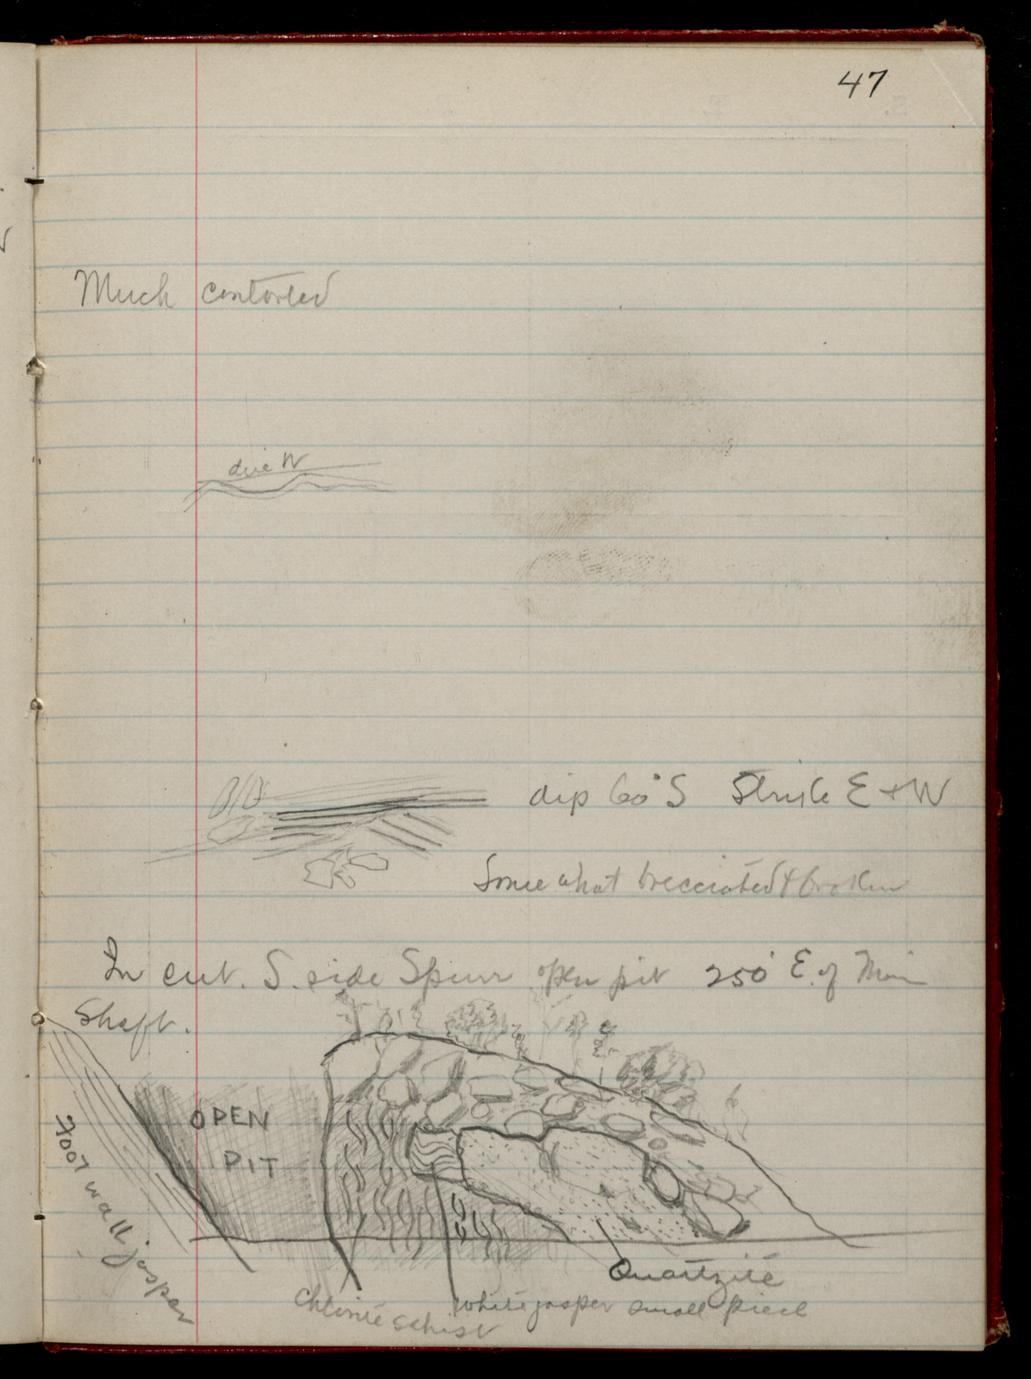 47
Much contorted
due W
dip 60° S Strike E + W
Somewhat brecciated & broken
In cut. S. side Spurr open pit 250' E. of Main
Shaft.
OPEN
PIT
Foot wall Jasper
Quartzite
Chlorite schist
White jasper small piece